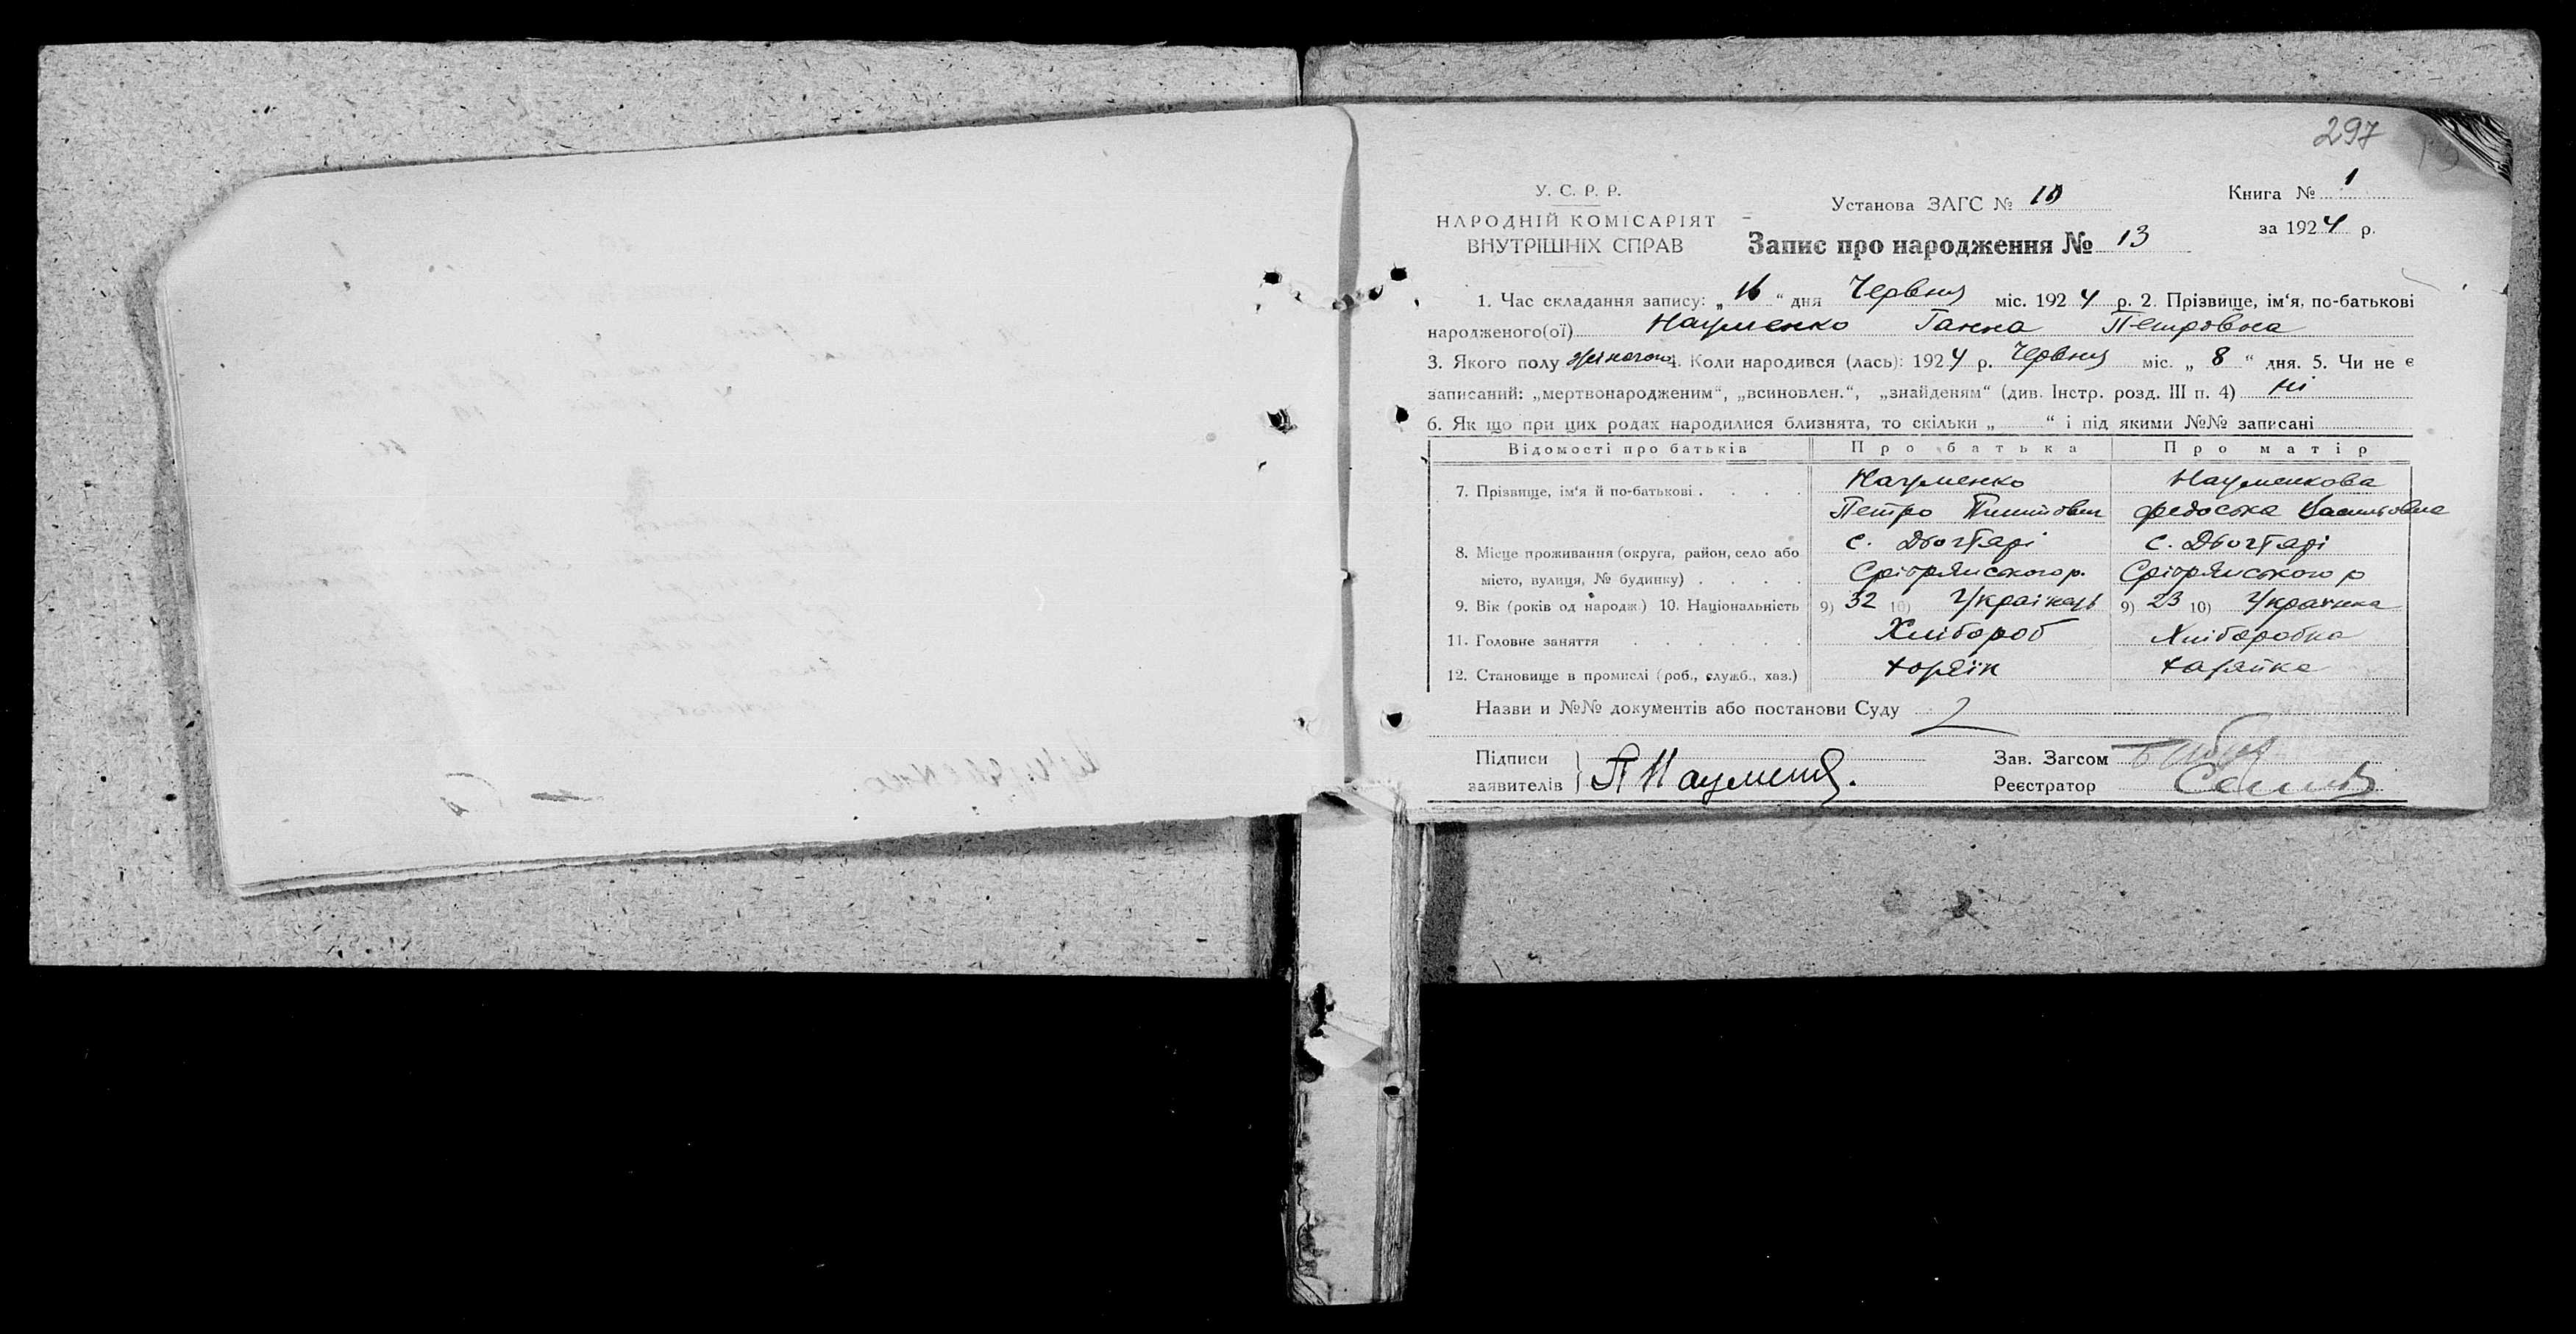 297
У. С. Р. Р.
НАРОДНІЙ КОМІСАРІЯТ
ВНУТРІШНІХ СПРАВ
Установа ЗАГС № 10
Запис про народження № 13
Книга № 1
за 1924 р.
1. Час складання запису: „16“ дня Червня міс. 1924 р. 2. Прізвище, ім‘я, по-батькові
народженого(ої) Науменко Ганна Петровна
3. Якого полу жіночого 4. Коли народився (лась): 1924 р. Червня міс. „ 8 “ дня. 5. Чи не є
записаний: „мертвонародженим“, „всиновлен.“, „знайденям“ (див. Інстр. розд. III п. 4) ні
6. Як що при цих родах народилися близнята, то скільки „ “ і під якими №№ записані
Відомості про батьків Про батька Про матір
7. Прізвище, ім‘я й по-батькові . . . . Науменко Науменкова
Петро Федоська Васильовна
8. Місце проживання (округа, район, село або с. Дьогтярі с. Дьогтярі
місто, вулиця, № будинку) . . . . Срібрянського р. Срібрянського р
9. Вік (років од народж.) 10. Національність 9) 32 10) Українець 9) 23 10) Українка
11. Головне заняття . . . . . Хлібороб Хліборобка
12. Становище в промислі (роб., служб., хаз.) хозяїн хазяйка
Назви и №№ документів або постанови Суду
Підписи
заявителів } П Науменко.
Зав. Загсом
Реєстратор